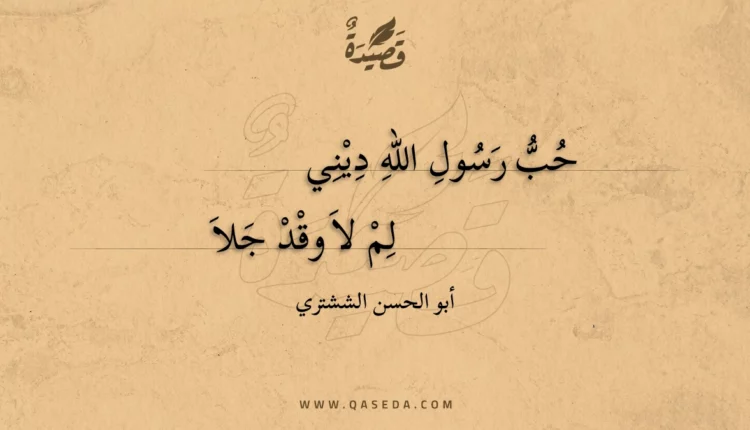 قَصِيدَةٌ
حُبُّ رَسُولِ اللهِ دِيْنِي
لِمْ لاَ وقْدْ جَلاَ
أبو الحسن الششتري
WWW.QASEDA.COM